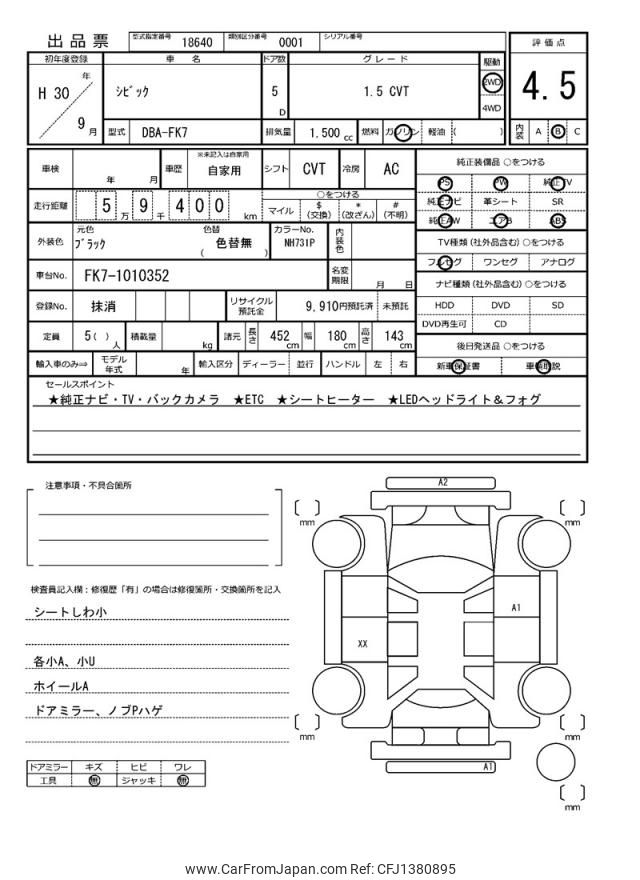 出品票 型式指定番号 18640 類別区分番号 0001 シリアル番号
初年度登録 車名 ドア数 グレード 駆動 評価点
H 30 年 9 月 シビック 5 D 1.5 CVT 2WD 4WD 4.5
型式 DBA-FK7 排気量 1.500 cc 燃料 ガソリン 軽油 ( ) 内装 A B C
車検 年 月 車歴 ※未記入は自家用 自家用 シフト CVT 冷房 AC
純正装備品 ○をつける
PS PW 純正TV
純正ナビ 革シート SR
純正AW エアB ABS
走行距離 5 万 9 千 4 0 0 km ○をつける マイル $ (交換) * (改ざん) # (不明)
外装色 元色 ブラック 色替 ( 色替無 ) カラーNo. NH731P 内装色
TV種類 (社外品含む) ○をつける
フルセグ ワンセグ アナログ
車台No. FK7-1010352 名変期限 月 日
ナビ種類 (社外品含む) ○をつける
HDD DVD SD
DVD再生可 CD
登録No. 抹消 リサイクル預託金 9,910円預託済 未預託
定員 5( ) 人 積載量 kg 諸元 長さ 452 cm 幅 180 cm 高さ 143 cm
後日発送品 ○をつける
新車保証書 車輌取説
輸入車のみ⇒ モデル年式 年 輸入区分 ディーラー 並行 ハンドル 左 右
セールスポイント
★純正ナビ・TV・バックカメラ ★ETC ★シートヒーター ★LEDヘッドライト＆フォグ
注意事項・不具合箇所
検査員記入欄：修復歴「有」の場合は修復箇所・交換箇所を記入
シートしわ小
各小A、小U
ホイールA
ドアミラー、ノブPハゲ
ドアミラー キズ ヒビ ワレ
工具 無 ジャッキ 無
A2
[ ] mm [ ] mm
A1
XX
[ ] mm [ ] mm
A1
[ ] mm
www.CarFromJapan.com Ref: CFJ1380895